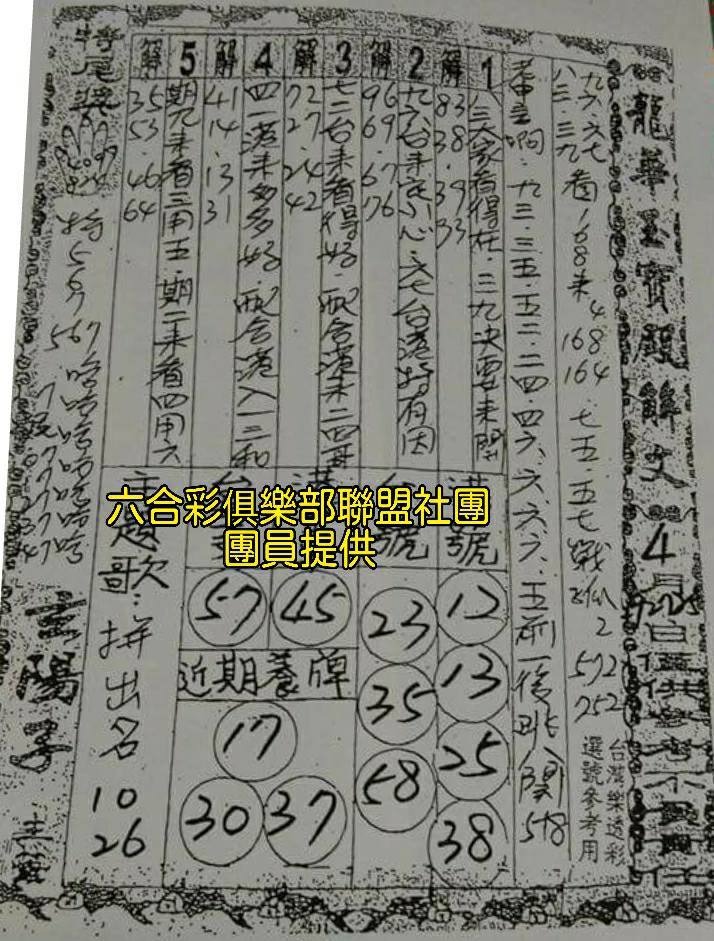 龍華玉寶殿解文
4月
日僅供參考不負責任
九六.六七
八三.三九看168來4
168
164
七五.五七戰孤2
572
752
台灣樂透彩
選號參考用
九三.三五.五三.二四.四六.六.六.六.五前一後跳開518
1
八三大家看得在.三九決要來開
解
83 38.39 93
2
九六台來定小心.六七台港特有因
解
96 69.67 76
3
七二台來看得好.配合港來二四再
解
72 27.24 42
4
四一港來多多好.配合港入一三和
解
41 14.13 31
5
期九來看三用五.期二來看四用六
解
35 53.46 64
特尾獎
特
567
六合彩俱樂部聯盟社團
團員提供
號
12
13
25
38
號
23
35
58
45
57
近期養牌
17
30
37
歌:拼出名
10
26
玄陽子